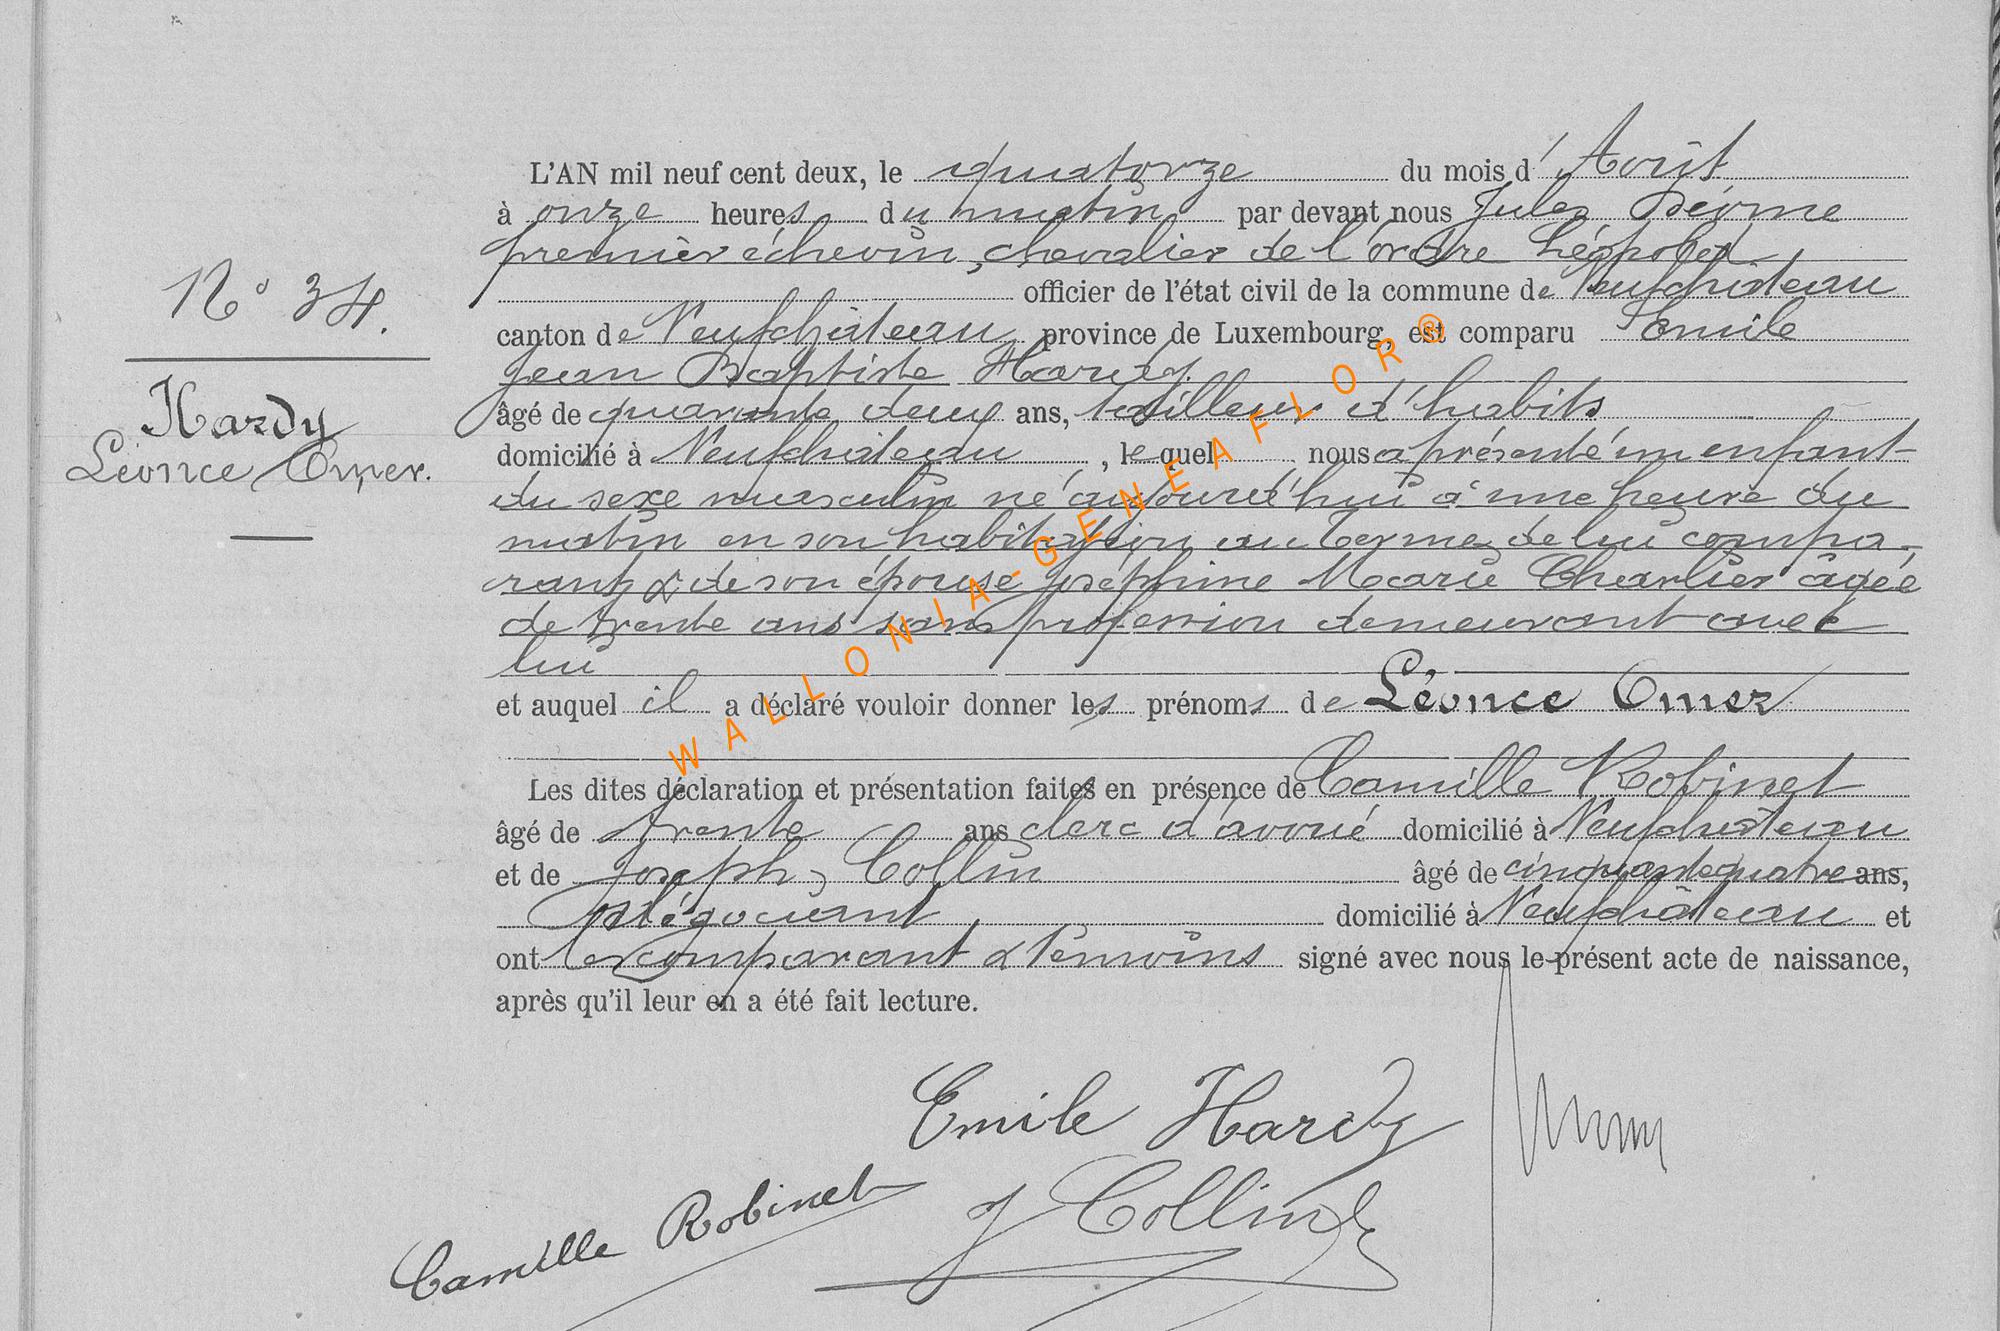 L'AN mil neuf cent deux, le quatorze du mois d' Août
à onze heures du matin par devant nous Jules
premier échevin, chevalier de l'ordre Léopold
officier de l'état civil de la commune de Neufchâteau
N° 34.
canton de Neufchâteau, province de Luxembourg, est comparu Emile
Jean Baptiste Hardy
Hardy
Léonce Omer.
âgé de quarante deux ans, tailleur d'habits
domicilié à Neufchâteau , lequel nous a présenté un enfant
du sexe masculin né aujourd'hui à une heure du
matin en son habitation au Terme, de lui compa-
rant & de son épouse Joséphine Marie Charlier âgée
de trente ans sans profession demeurant avec
lui
et auquel il a déclaré vouloir donner les prénoms de Léonce Omer
Les dites déclaration et présentation faites en présence de Camille Robinet
âgé de trente ans clerc d'avoué domicilié à Neufchâteau
et de Joseph Collin âgé de cinquante quatre ans,
négociant domicilié à Neufchâteau et
ont les comparant & témoins signé avec nous le présent acte de naissance,
après qu'il leur en a été fait lecture.
Emile Hardy
Camille Robinet
J Collin
WALLONIA-GENEAFLOR®